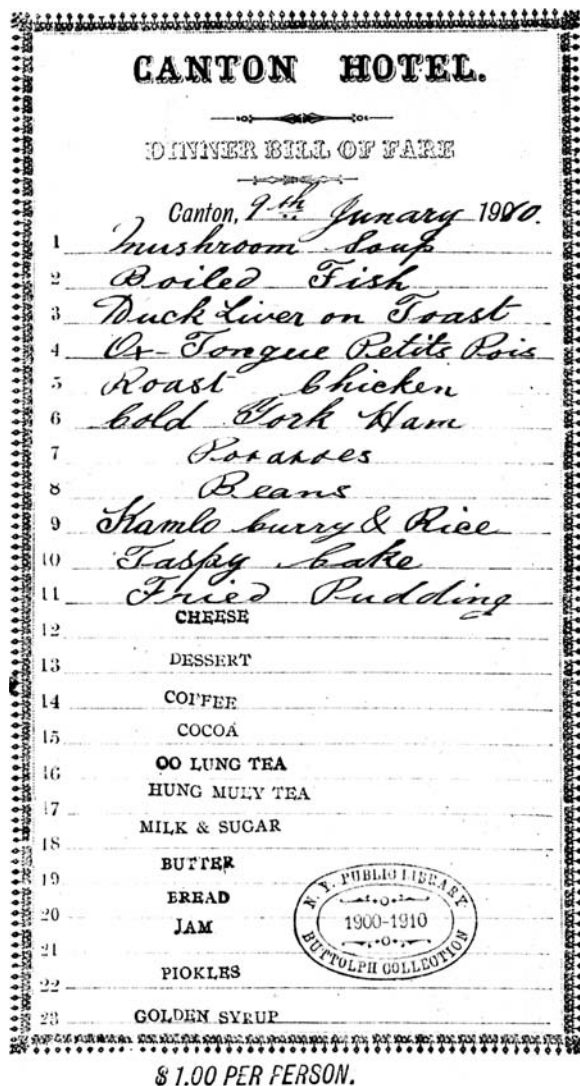 CANTON HOTEL.
DINNER BILL OF FARE
Canton, 9th Junary 1910.
1 Mushroom Soup
2 Boiled Fish
3 Duck Liver on Toast
4 Ox-Tongue Petits Pois
5 Roast Chicken
6 Cold York Ham
7 Potatoes
8 Beans
9 Kamlo Curry & Rice
10 Taspy Cake
11 Fried Pudding
12 CHEESE
13 DESSERT
14 COFFEE
15 COCOA
16 OO LUNG TEA
17 HUNG MUEY TEA
18 MILK & SUGAR
19 BUTTER
20 BREAD
21 JAM
22 PICKLES
23 GOLDEN SYRUP
N. Y. PUBLIC LIBRARY.
1900-1910
BUTTOLPH COLLECTION
$1.00 PER PERSON.